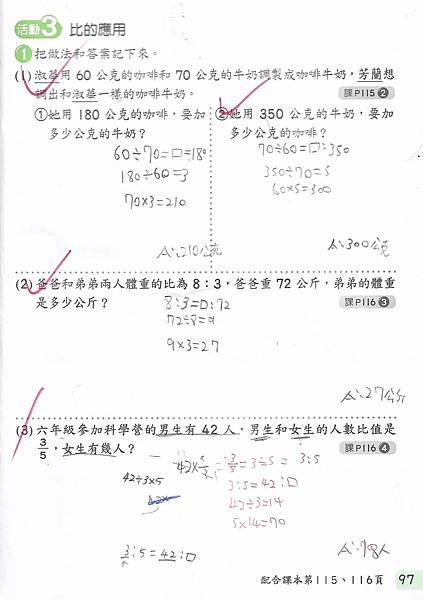 活動3 比的應用
1 把做法和答案記下來。
(1) 淑華用 60 公克的咖啡和 70 公克的牛奶調製成咖啡牛奶，芳蘭想
調出和淑華一樣的咖啡牛奶。 課P115 2
①她用 180 公克的咖啡，要加
多少公克的牛奶？
60÷70=□=180
180÷60=3
70×3=210
A:210公克
②她用 350 公克的牛奶，要加
多少公克的咖啡？
70÷60=□:350
350÷70=5
60×5=300
A:300公克
(2) 爸爸和弟弟兩人體重的比為 8：3，爸爸重 72 公斤，弟弟的體重
是多少公斤？ 課P116 3
8:3=□:72
72÷8=9
9×3=27
A:27公斤
(3) 六年級參加科學營的男生有 42 人，男生和女生的人數比值是
3/5，女生有幾人？ 課P116 4
42÷3×5
3/5=3÷5=3:5
3:5=42:□
42÷3=14
5×14=70
3:5=42:□
配合課本第115、116頁 97